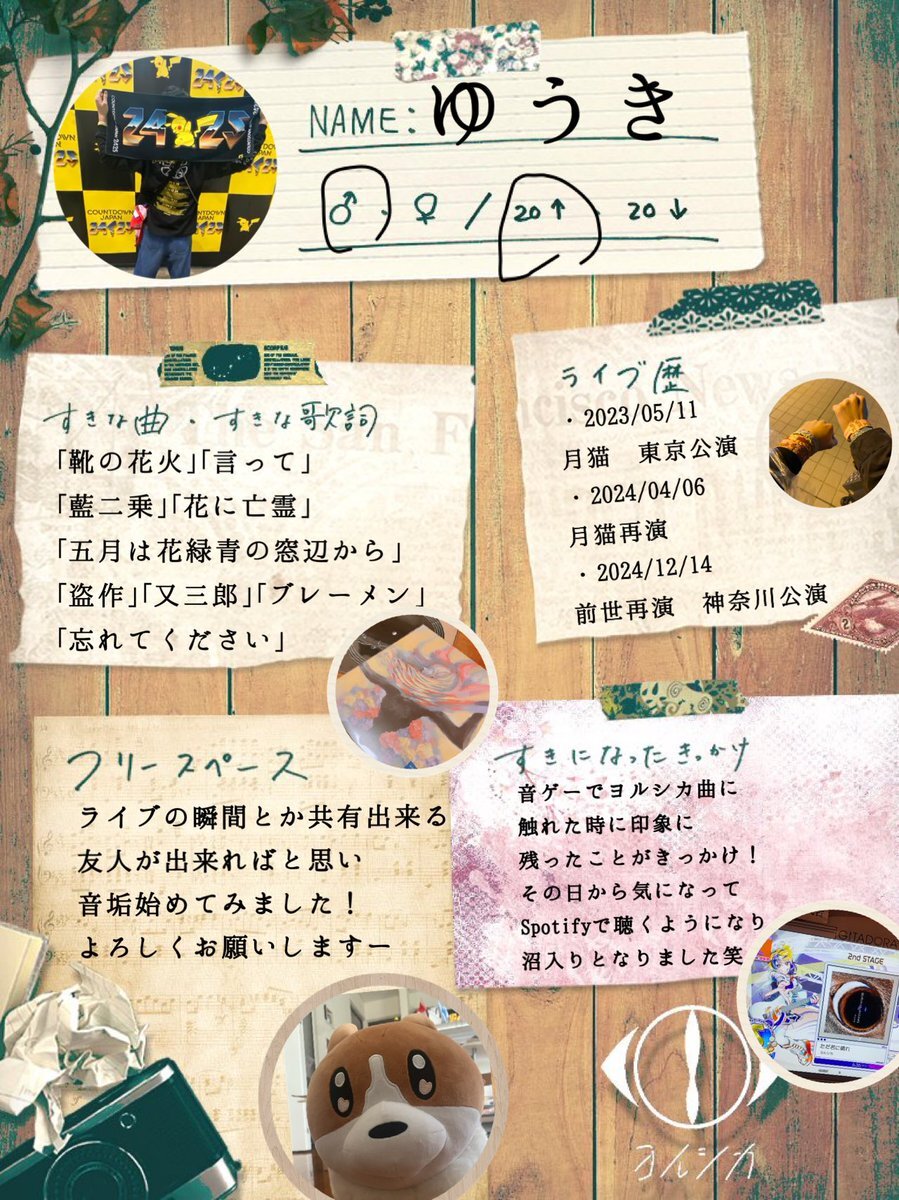 NAME: ゆうき
♂・♀ / 20↑ 20↓
COUNTDOWN JAPAN
24 25
すきな曲・すきな歌詞
「靴の花火」「言って」
「藍二乗」「花に亡霊」
「五月は花緑青の窓辺から」
「盗作」「又三郎」「ブレーメン」
「忘れてください」
ライブ歴
・2023/05/11
月猫 東京公演
・2024/04/06
月猫再演
・2024/12/14
前世再演 神奈川公演
The San Francisco News
フリースペース
ライブの瞬間とか共有出来る
友人が出来ればと思い
音垢始めてみました！
よろしくお願いしますー
すきになったきっかけ
音ゲーでヨルシカ曲に
触れた時に印象に
残ったことがきっかけ！
その日から気になって
Spotifyで聴くようになり
沼入りとなりました笑
GITADORA
2nd STAGE
ただ君に晴れ
ヨルシカ